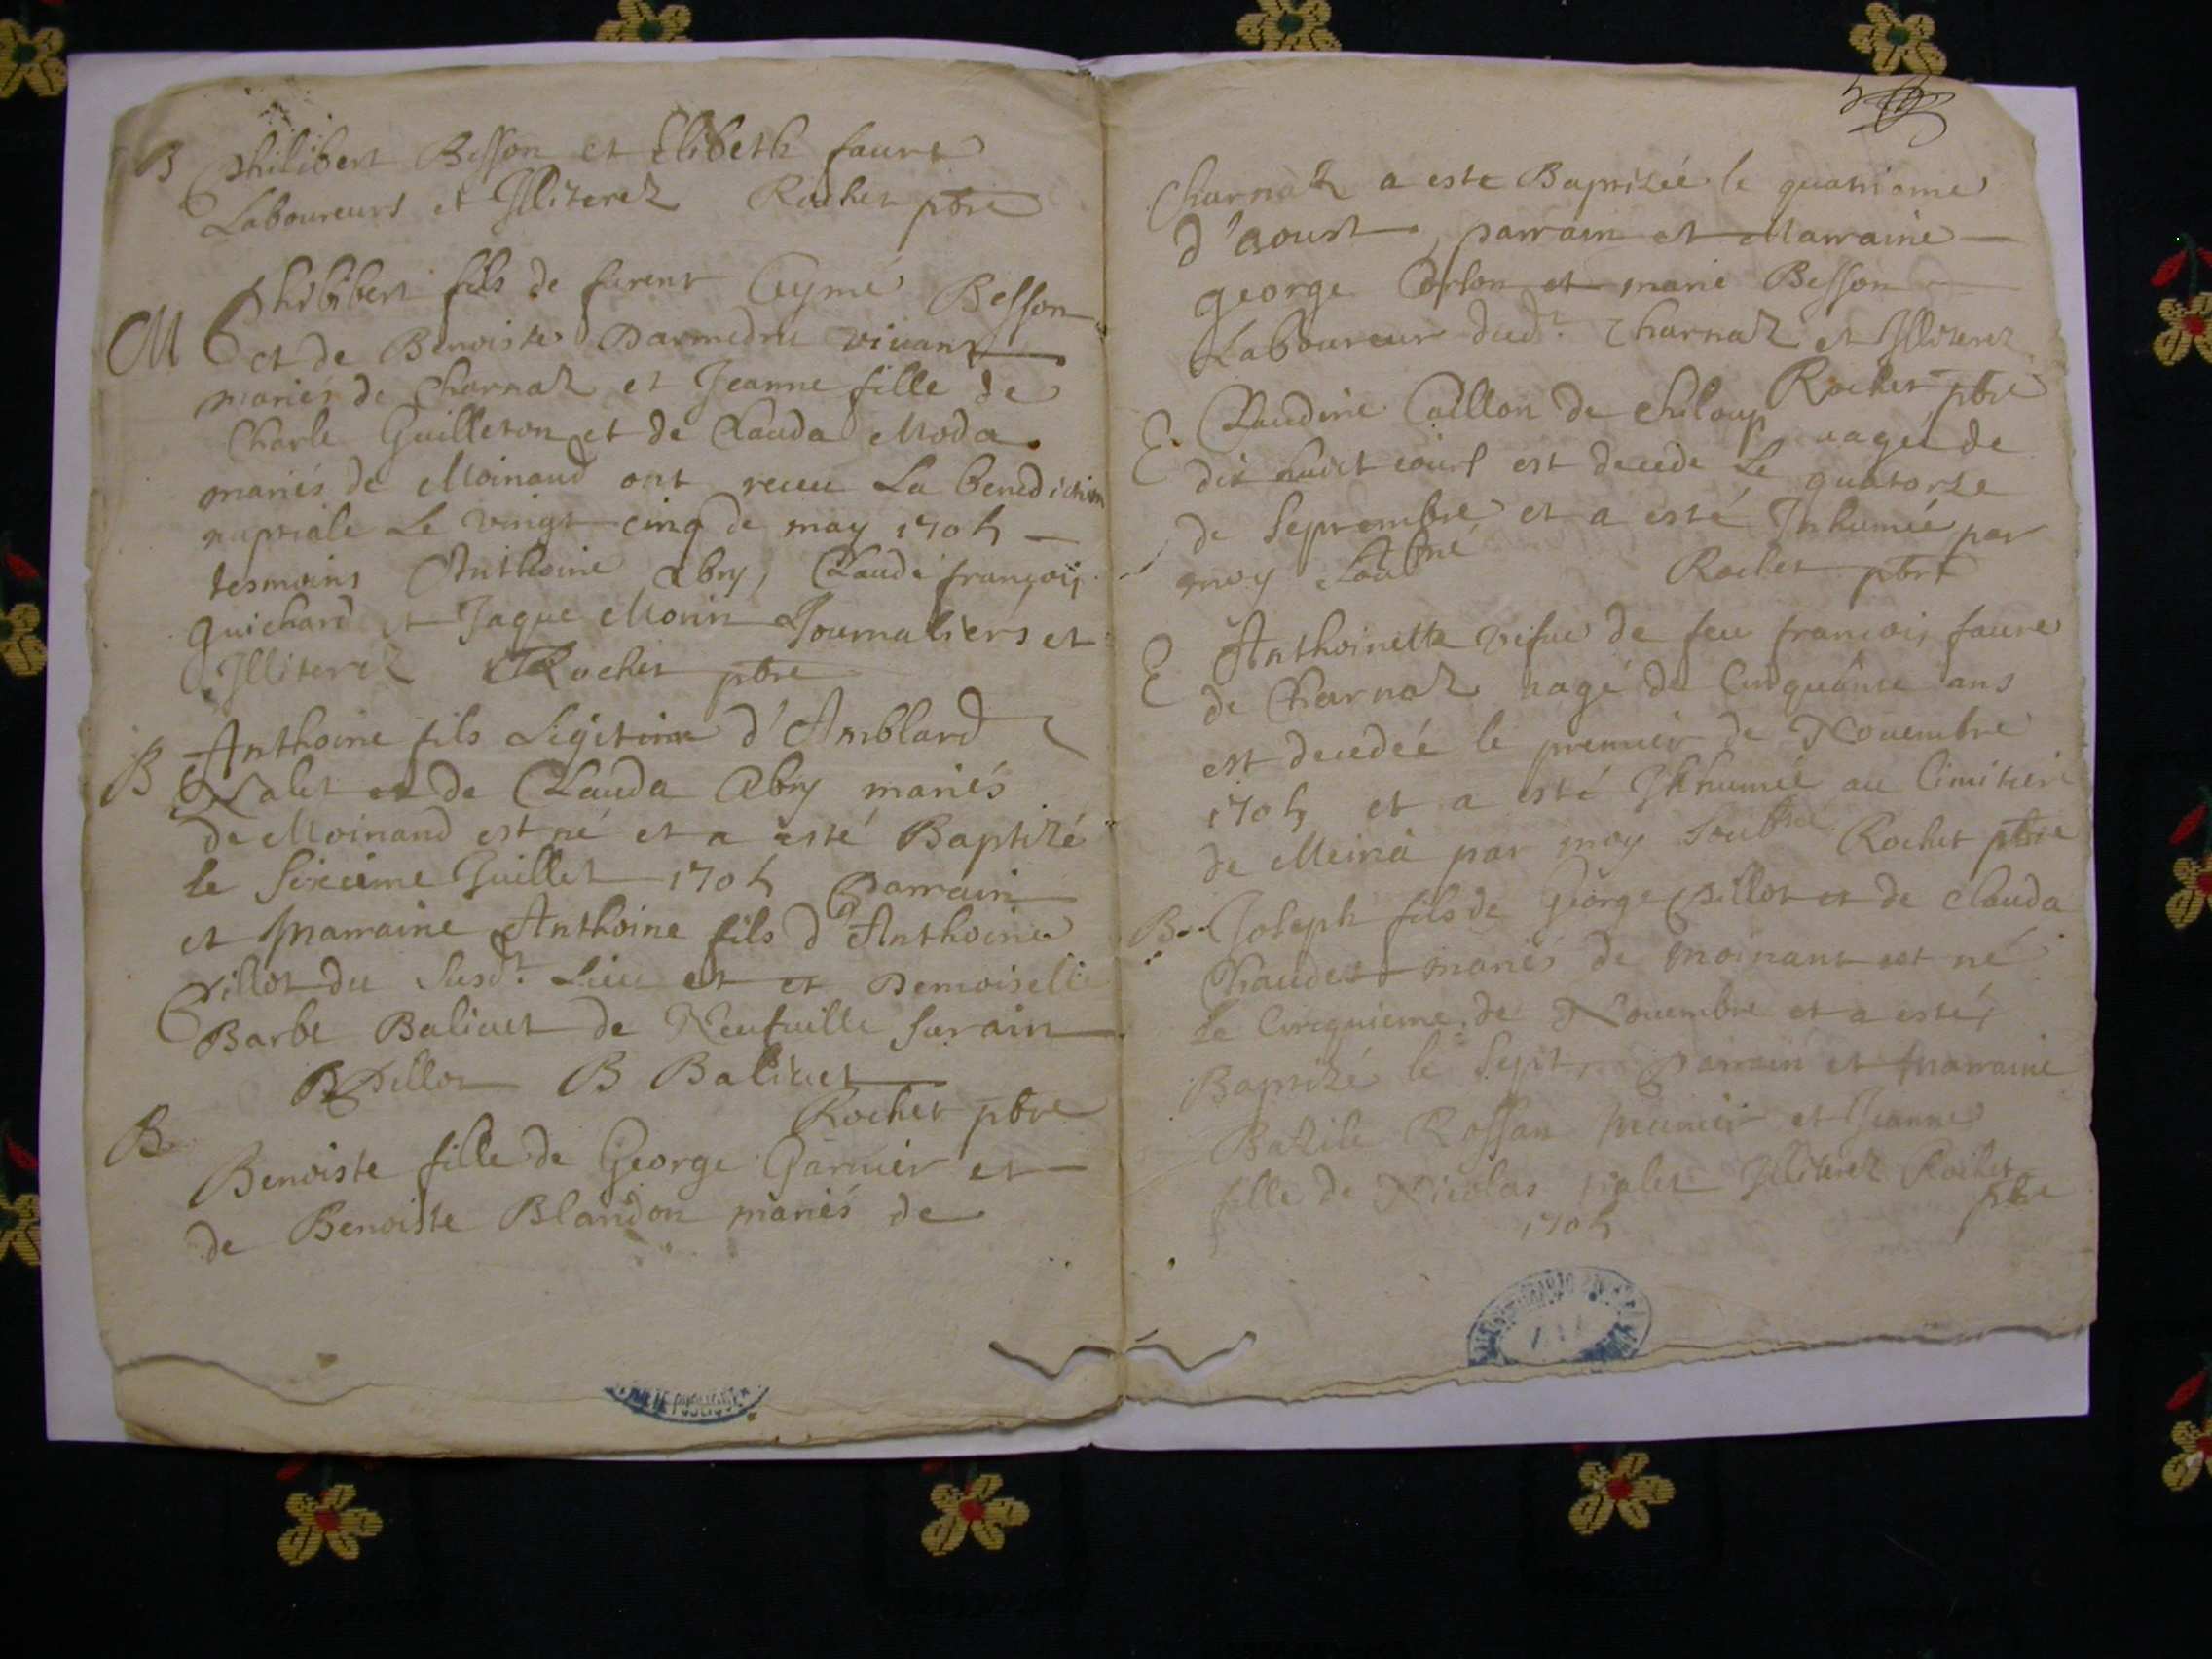 B Philibert Besson et Elibeth faure
Laboureurs et Illiterez Rochet pbre
M Philibert fils de furent Aymé Besson
et de Benoiste Darmedru vivant
mariés de Charnaz et Jeanne fille de
Charle Guilleton et de Clauda Moda
mariés de Moinaud ont receu La benediction
nuptiale Le vingt cinq de may 1705
tesmoins Anthoine Abry, Claude françois
Guichard et Jaque Morin Journaliers et
Illiterez Rochet pbre
B Anthoine fils Legitime d'Amblard
et de Clauda Abry mariés
de Moinaud est né et a esté Baptizé
le Sixieme Juillet 1705 Parrain
et Marraine Anthoine fils d'Anthoine
Pillot du Susd.t Lieu et et Demoiselle
Barbe Baliuet de Neufuille Surain
Pillot B Baliuet
Rochet pbre
B
Benoiste fille de George Garnier et
de Benoiste Blandon mariés de
Charnaz a este Baptizée le quatrieme
d'Aoust, parrain et Marraine
george et marie Besson
Laboureur dud.t Charnaz et Illiterez
Rochet pbre
E. Claudine Caillon de Chiloup aagée de
dix huict iours est decede Le quatorze
de Septembre et a esté Inhumée par
moy Soubné Rochet pbre
E Anthoinette vefue de feu francois faure
de Charnaz aagé de Cinquante ans
est decedeé le premier de Nouembre
1705 et a esté Inhumée au Cimitiere
de Meina par moy Soubné Rochet pbre
B Joseph fils de George Pillot et de Clauda
Chaudet mariés de Moinaut est né
le Cinquieme de Nouembre et a esté
Baptizé le Sept, Parrain et Marraine
Bazile Rossan Meunier et Jeanne
fille de Nicolas Illiterez Rochet
pbre
1705
PUBLIQUE